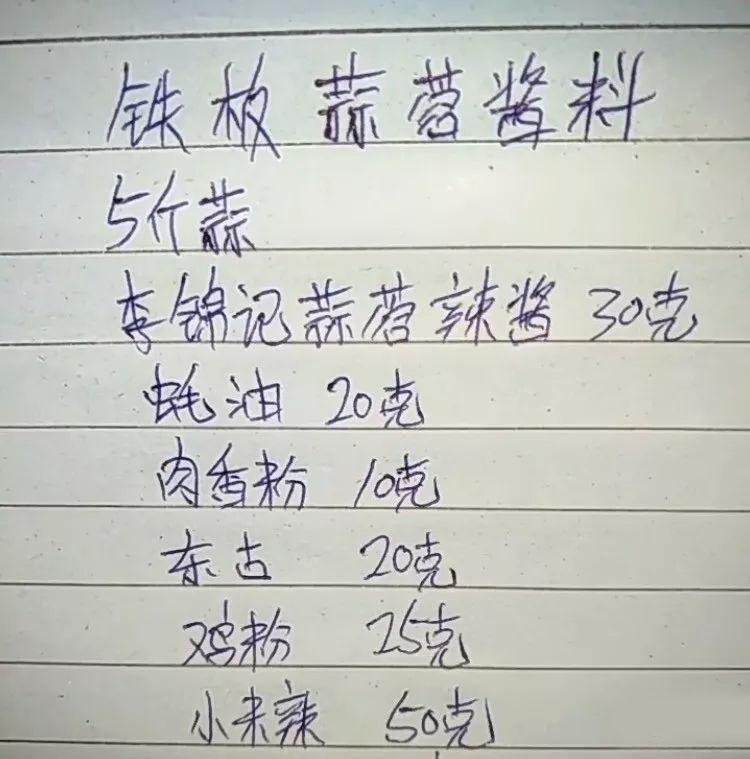 铁板蒜蓉酱料
5个蒜
李锦记蒜蓉辣酱 30克
蚝油 20克
肉香粉 10克
东古 20克
鸡粉 25克
小米辣 50克